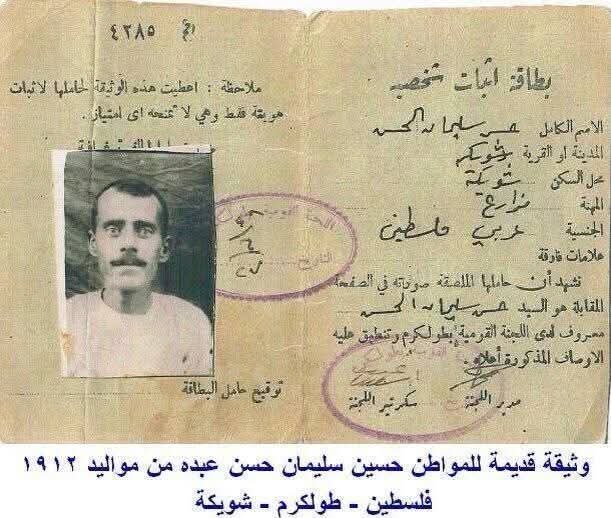 بطاقة اثبات شخصية
الاسم الكامل حسن سليمان الحسن
المدينة او القرية شويكه
محل السكن شويكة
المهنة مزارع
الجنسية عربي فلسطين
علامات فارقة
نشهد أن حاملها الملصقة صورته في الصفحة
المقابلة هو السيد حسن سليمان الحسن
معروف لدى اللجنة القومية بطولكرم وتنطبق عليه
الاوصاف المذكورة أعلاه
مدير اللجنة سكرتير اللجنة
٤٢٨٥
ملاحظة : اعطيت هذه الوثيقة لحاملها لاثبات
هويته فقط وهي لا تمنحه اى امتياز.
اللجنة القومية بطولكرم
التاريخ
توقيع حامل البطاقة
وثيقة قديمة للمواطن حسين سليمان حسن عبده من مواليد ١٩١٢
فلسطين - طولكرم - شويكة